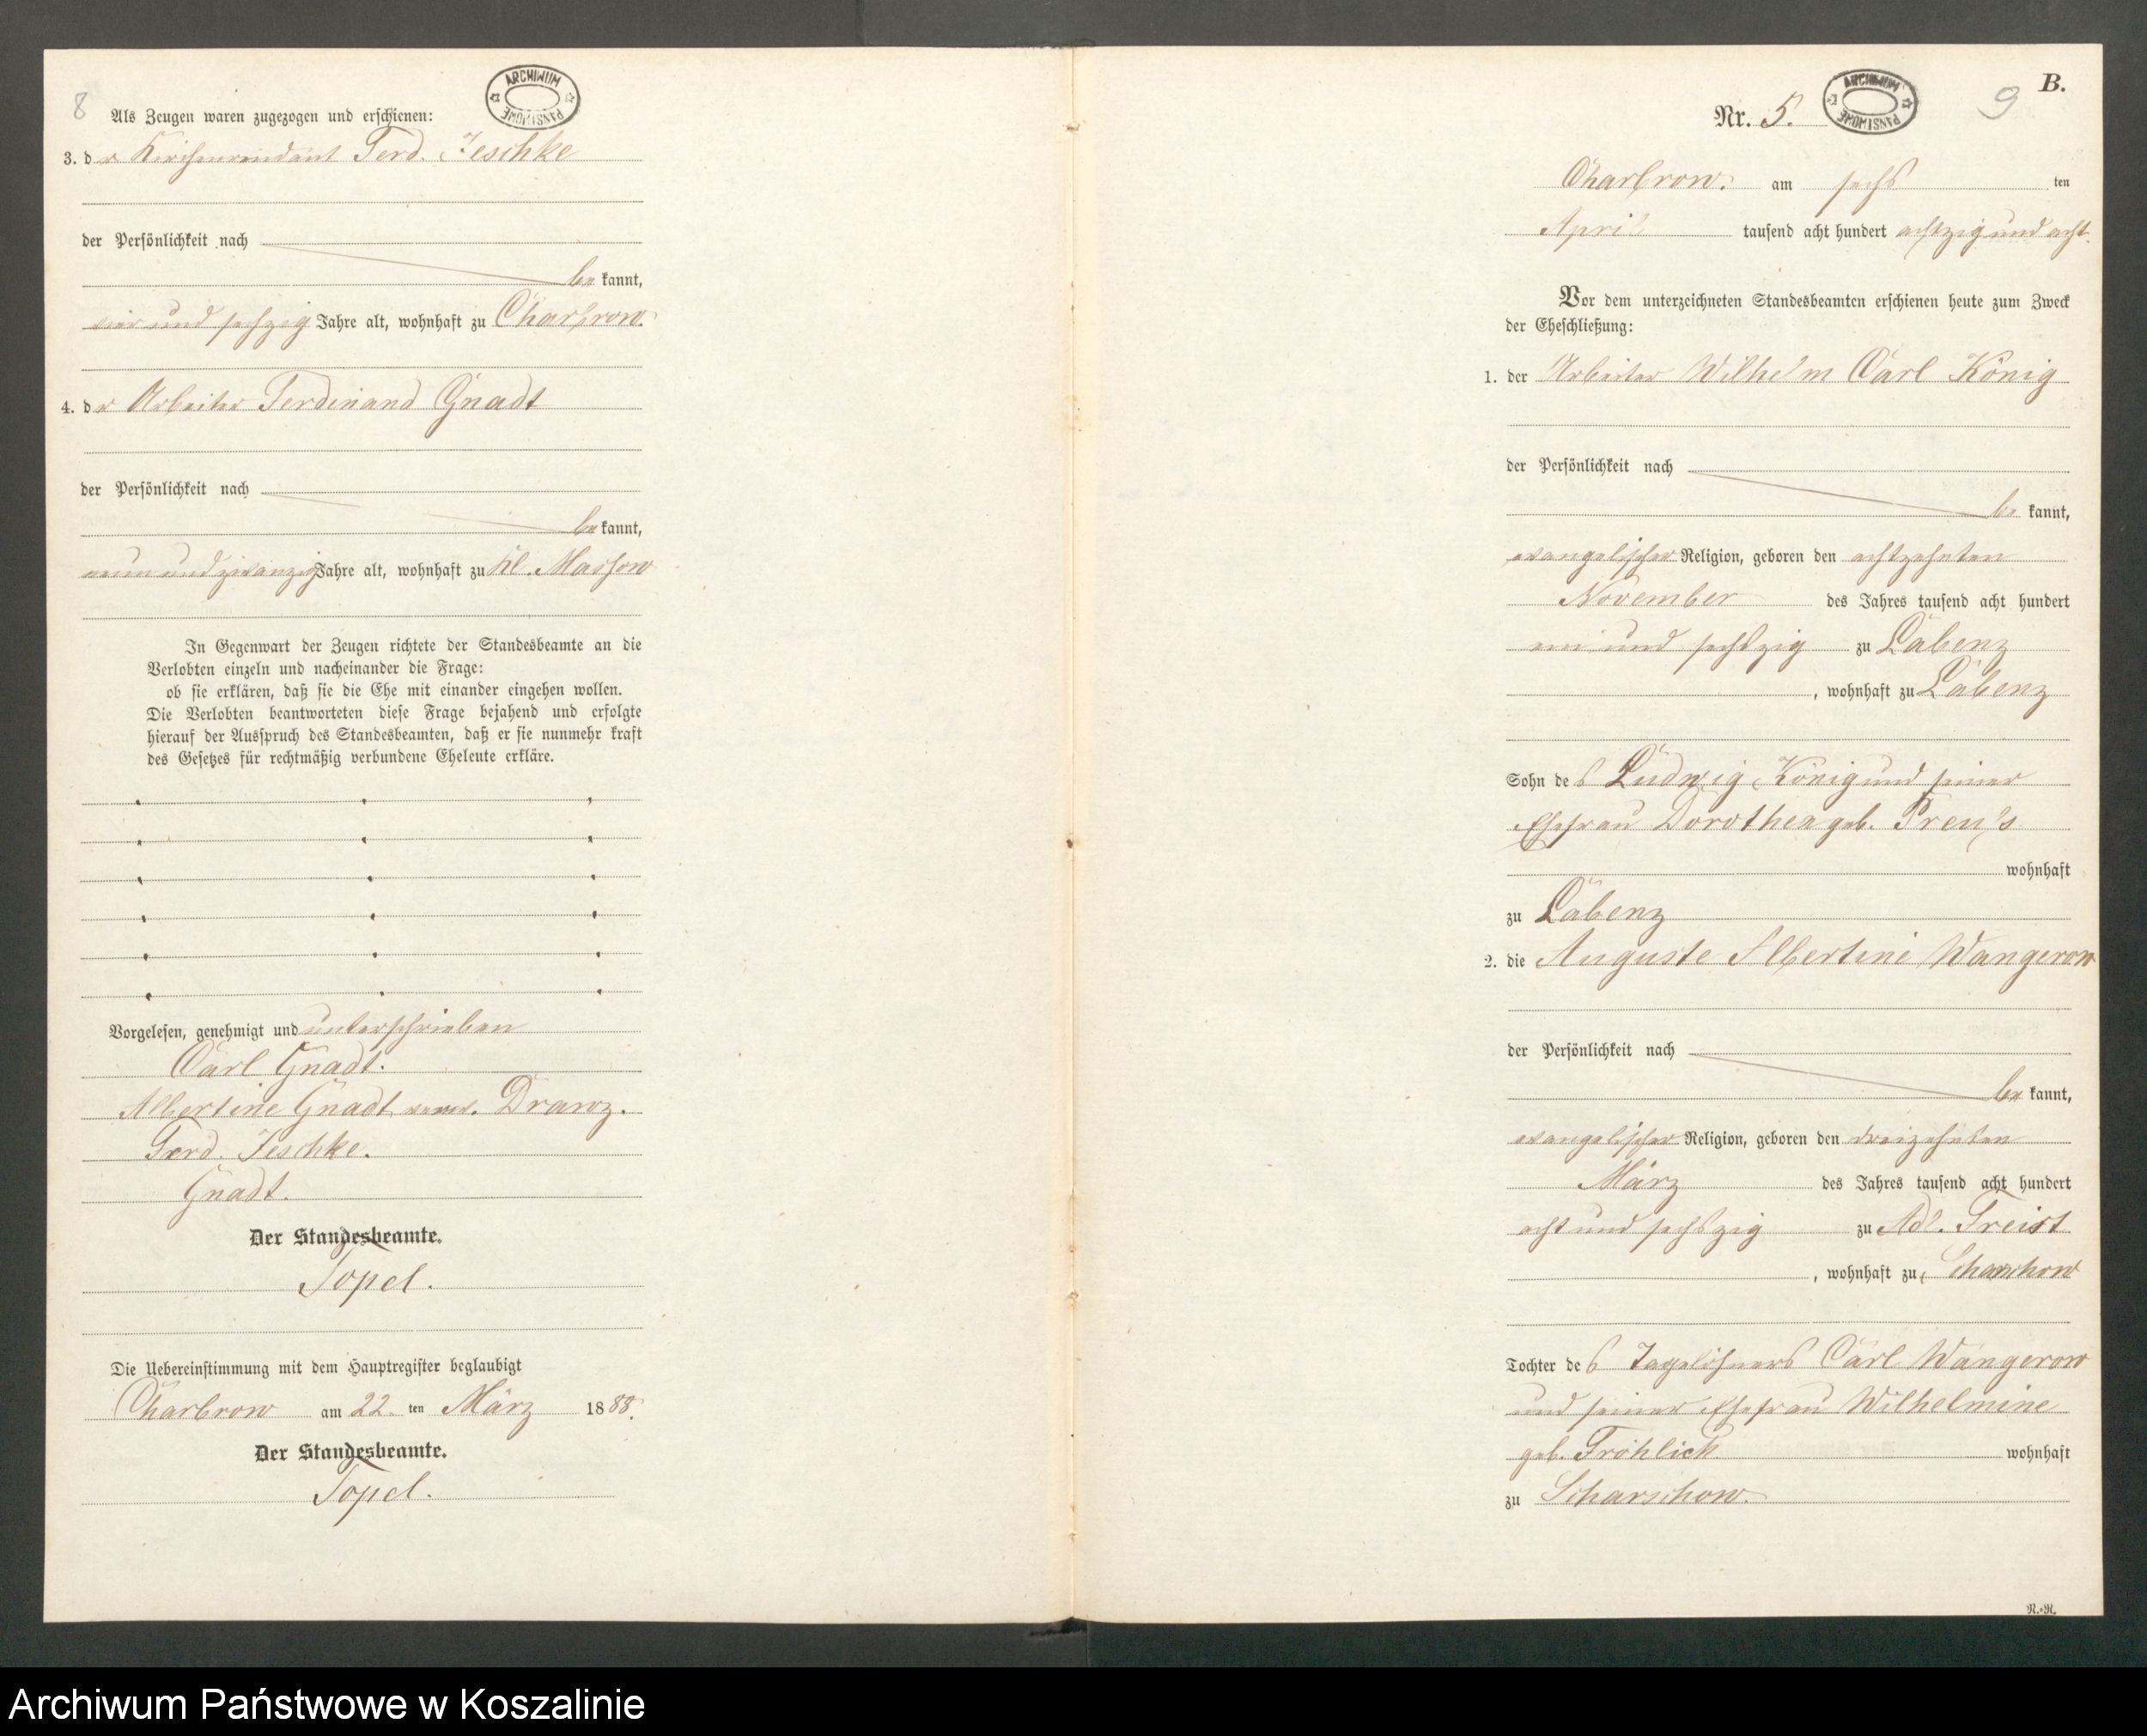 8
ARCHIWUM PAŃSTWOWE
Als Zeugen waren zugezogen und erschienen:
3. der Kirchenrendant Ferd. Jeschke
der Persönlichkeit nach
be kannt,
vier und sechzig Jahre alt, wohnhaft zu Charbrow.
4. der Arbeiter Ferdinand Gnadt
der Persönlichkeit nach
be kannt,
neun und zwanzig Jahre alt, wohnhaft zu Kl. Massow
In Gegenwart der Zeugen richtete der Standesbeamte an die
Verlobten einzeln und nacheinander die Frage:
ob sie erklären, daß sie die Ehe mit einander eingehen wollen.
Die Verlobten beantworteten diese Frage bejahend und erfolgte
hierauf der Ausspruch des Standesbeamten, daß er sie nunmehr kraft
des Gesetzes für rechtmäßig verbundene Eheleute erkläre.
Vorgelesen, genehmigt und unterschrieben
Carl Gnadt.
Albertine Gnadt verw. Drawz.
Ferd. Jeschke.
Gnadt.
Der Standesbeamte.
Topel.
Die Uebereinstimmung mit dem Hauptregister beglaubigt
Charbrow am 22. ten März 1888.
Der Standesbeamte.
Topel.
B.
9
ARCHIWUM PAŃSTWOWE
Nr. 5.
Charbrow. am sechs ten
April tausend acht hundert achtzig und acht.
Vor dem unterzeichneten Standesbeamten erschienen heute zum Zweck
der Eheschließung:
1. der Arbeiter Wilhelm Carl König
der Persönlichkeit nach
be kannt,
evangelischer Religion, geboren den achtzehnten
November des Jahres tausend acht hundert
und sechszig zu Labenz
, wohnhaft zu Labenz
Sohn des Ludwig König und seiner
Ehefrau Dorothea geb. Preuß
wohnhaft
zu Labenz
2. die Auguste Albertine Wangerow
der Persönlichkeit nach
be kannt,
evangelischer Religion, geboren den dreizehnten
März des Jahres tausend acht hundert
acht und sechszig zu Adl. Freist
, wohnhaft zu Scharschow
Tochter des Tagelöhners Carl Wangerow
und seiner Ehefrau Wilhelmine
geb. Fröhlich wohnhaft
zu Scharschow.
R.-R.
Archiwum Państwowe w Koszalinie